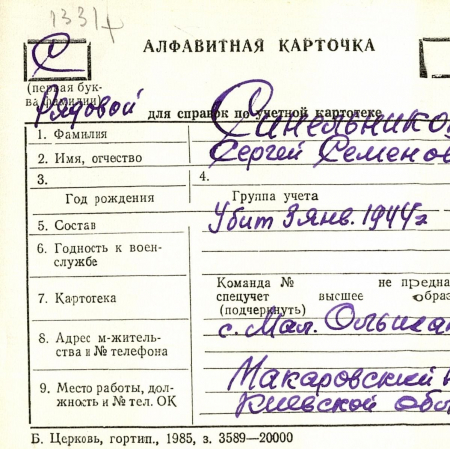 1331
АЛФАВИТНАЯ КАРТОЧКА
С
(первая бук-
ва фамилии)
Рядовой
для справок по учетной картотеке
1. Фамилия
Синельнико
2. Имя, отчество
Сергей Семенов
3.
4.
Год рождения
Группа учета
5. Состав
Убит 3 янв. 1944 г
6. Годность к воен-
службе
Команда № не предна
7. Картотека
спецучет высшее образ
(подчеркнуть)
8. Адрес м-житель-
ства и № телефона
с. Мал.
9. Место работы, дол-
жность и № тел. ОК
Макаровский
Киевской обл
Б. Церковь, гортип., 1985, з. 3589—20000